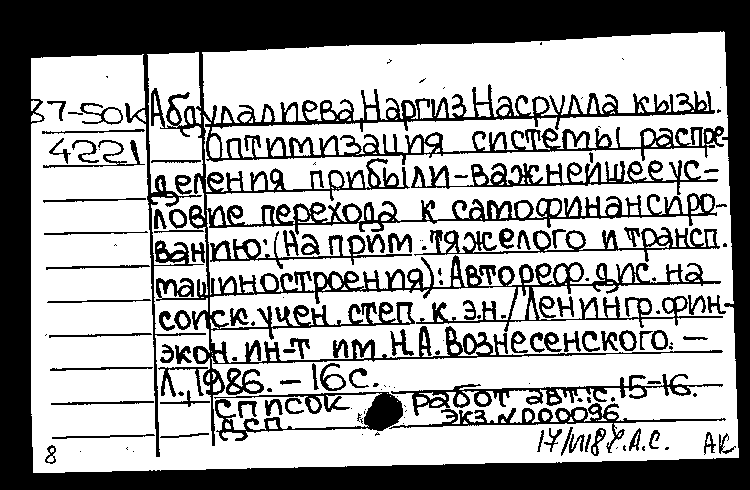 87-50к Абдулалиева, Наргиз Насрулла кызы.
4221 Оптимизация системы распре-
деления прибыли-важнейшее ус-
ловие перехода к самофинансиро-
ванию: (На прим. тяжелого и трансп.
машиностроения): Автореф. дис. на
соиск. учен. степ. к. э.н. / Ленингр. фин.-
экон. ин-т им. Н.А. Вознесенского. —
Л., 1986. — 16 с.
Список работ авт.: с. 15-16.
ДСП. экз. N 000096.
8 А.С. АК